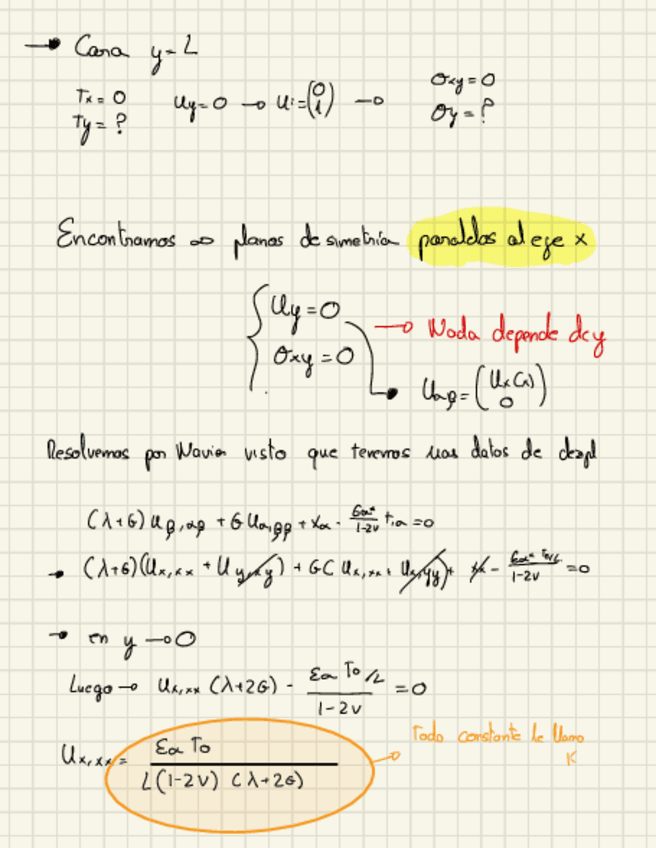 → Cara y=L
Tx=0 uy=0 → ui=(0 1) → σxy=0
Ty=? σy=?
Encontramos ∞ planos de simetría paralelos al eje x
{ uy=0 → Nada depende de y
σxy=0 → uαβ=(ux(x) 0)
Resolvemos por Navier visto que tenemos mas datos de despl
(λ+G) uβ,αβ + G uα,ββ + Xα - Eα*/1-2ν t,α =0
→ (λ+G)(ux,xx + uy,xy) + G( ux,xx + ux,yy)+ Xx - Eα* To/L/1-2ν =0
→ en y → 0
Luego → ux,xx (λ+2G) - Eα To/L/1-2ν =0
ux,xx = Eα To/L(1-2ν) (λ+2G)
→ Todo constante le llamo
K